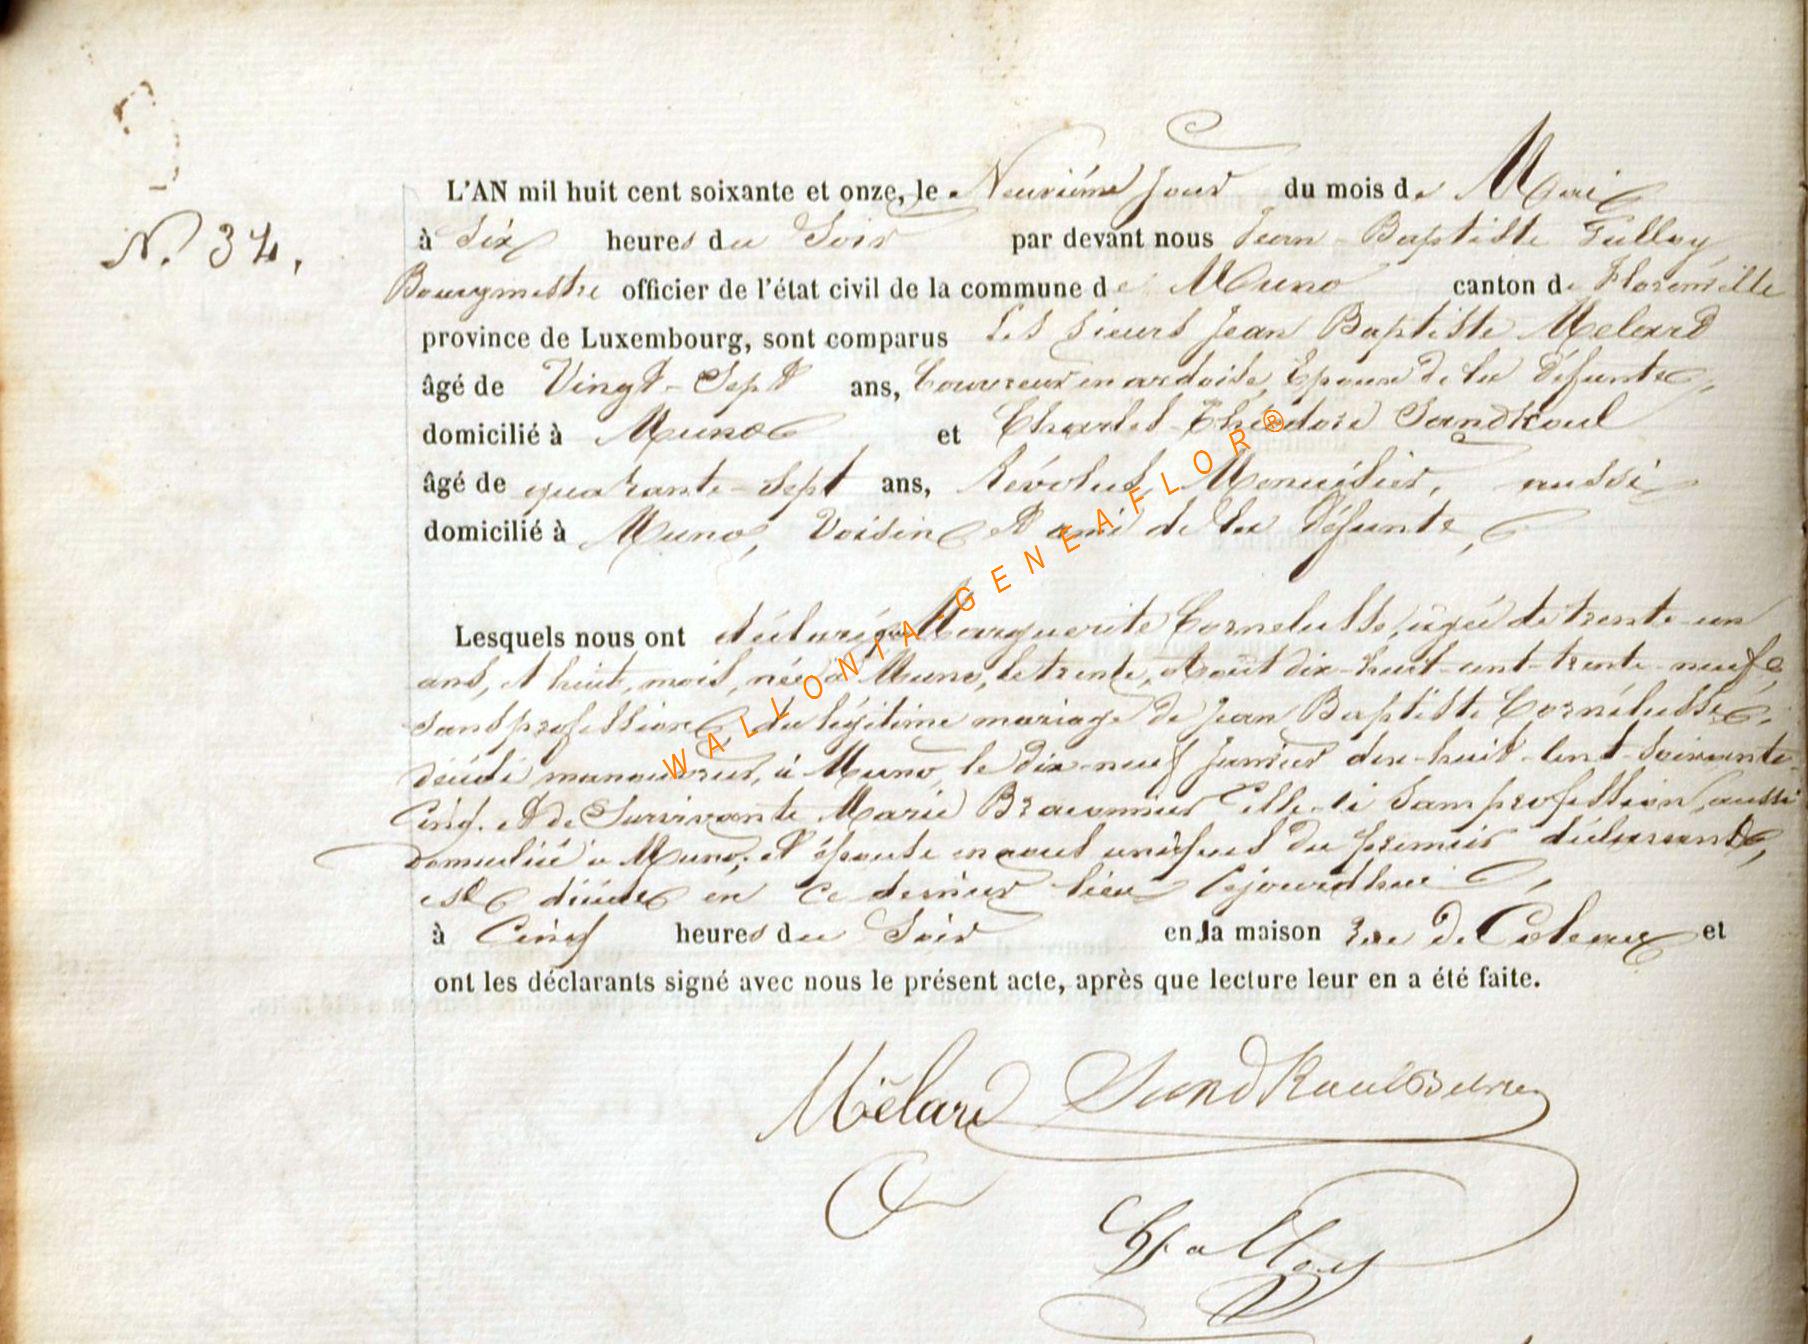 N.° 34.
L'AN mil huit cent soixante et onze, le Neuvième jour du mois de Mai
à Six heures du Soir par devant nous Jean-Baptiste
Bourgmestre officier de l'état civil de la commune de Muno canton de Florenville
province de Luxembourg, sont comparus Les Sieurs Jean Baptiste Mélard
âgé de Vingt-Sept ans, Couvreur en ardoise, Epoux de la défunte,
domicilié à Muno et Charles-Théodore Sandkoul
âgé de quarante-sept ans, Révolus Menuisier, aussi
domicilié à Muno, Voisin et ami de la défunte,
Lesquels nous ont déclaré que Marguerite Cornelusse, agée de trente-un
ans, et huit, mois, née à Muno, le trente, Août dix-huit-cent-trente-neuf,
sans profession du légitime mariage de Jean Baptiste Cornélusse,
décédé manouvrier, à Muno, le dix-neuf Janvier dix-huit-cent-soixante-
Cinq. et de Survivante Marie Braconnier Celle-ci sans profession, aussi
Domiciliée à Muno, et épouse en du premier déclarant,
est décédée en ce dernier lieu Cejourdhui
à Cinq heures du Soir en la maison rue de et
ont les déclarants signé avec nous le présent acte, après que lecture leur en a été faite.
Mélard Sandkoul
WALLONIA GENEAFLOR®